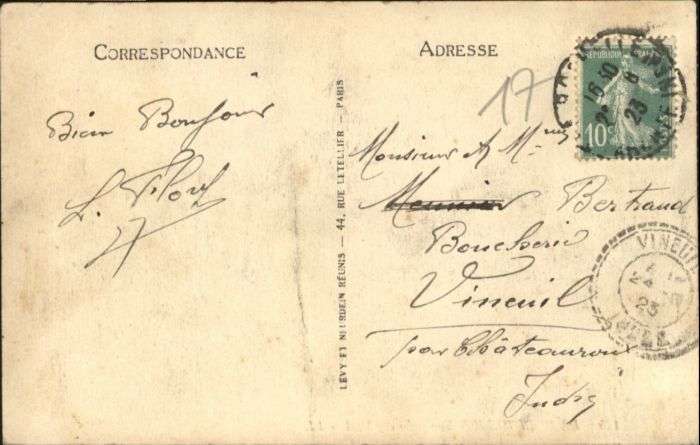 CORRESPONDANCE
Bien Bonjour
L.
LÉVY ET NEURDEIN RÉUNIS — 44, RUE LETELLIER — PARIS
ADRESSE
17
Monsieur & Mme
Meunier Bertrand
Boucherie
Vineuil
par Châteauroux
Indre
REPUBLIQUE FRANÇAISE
10c
16 10
2 6
23
VINEUIL
24
23
INDRE